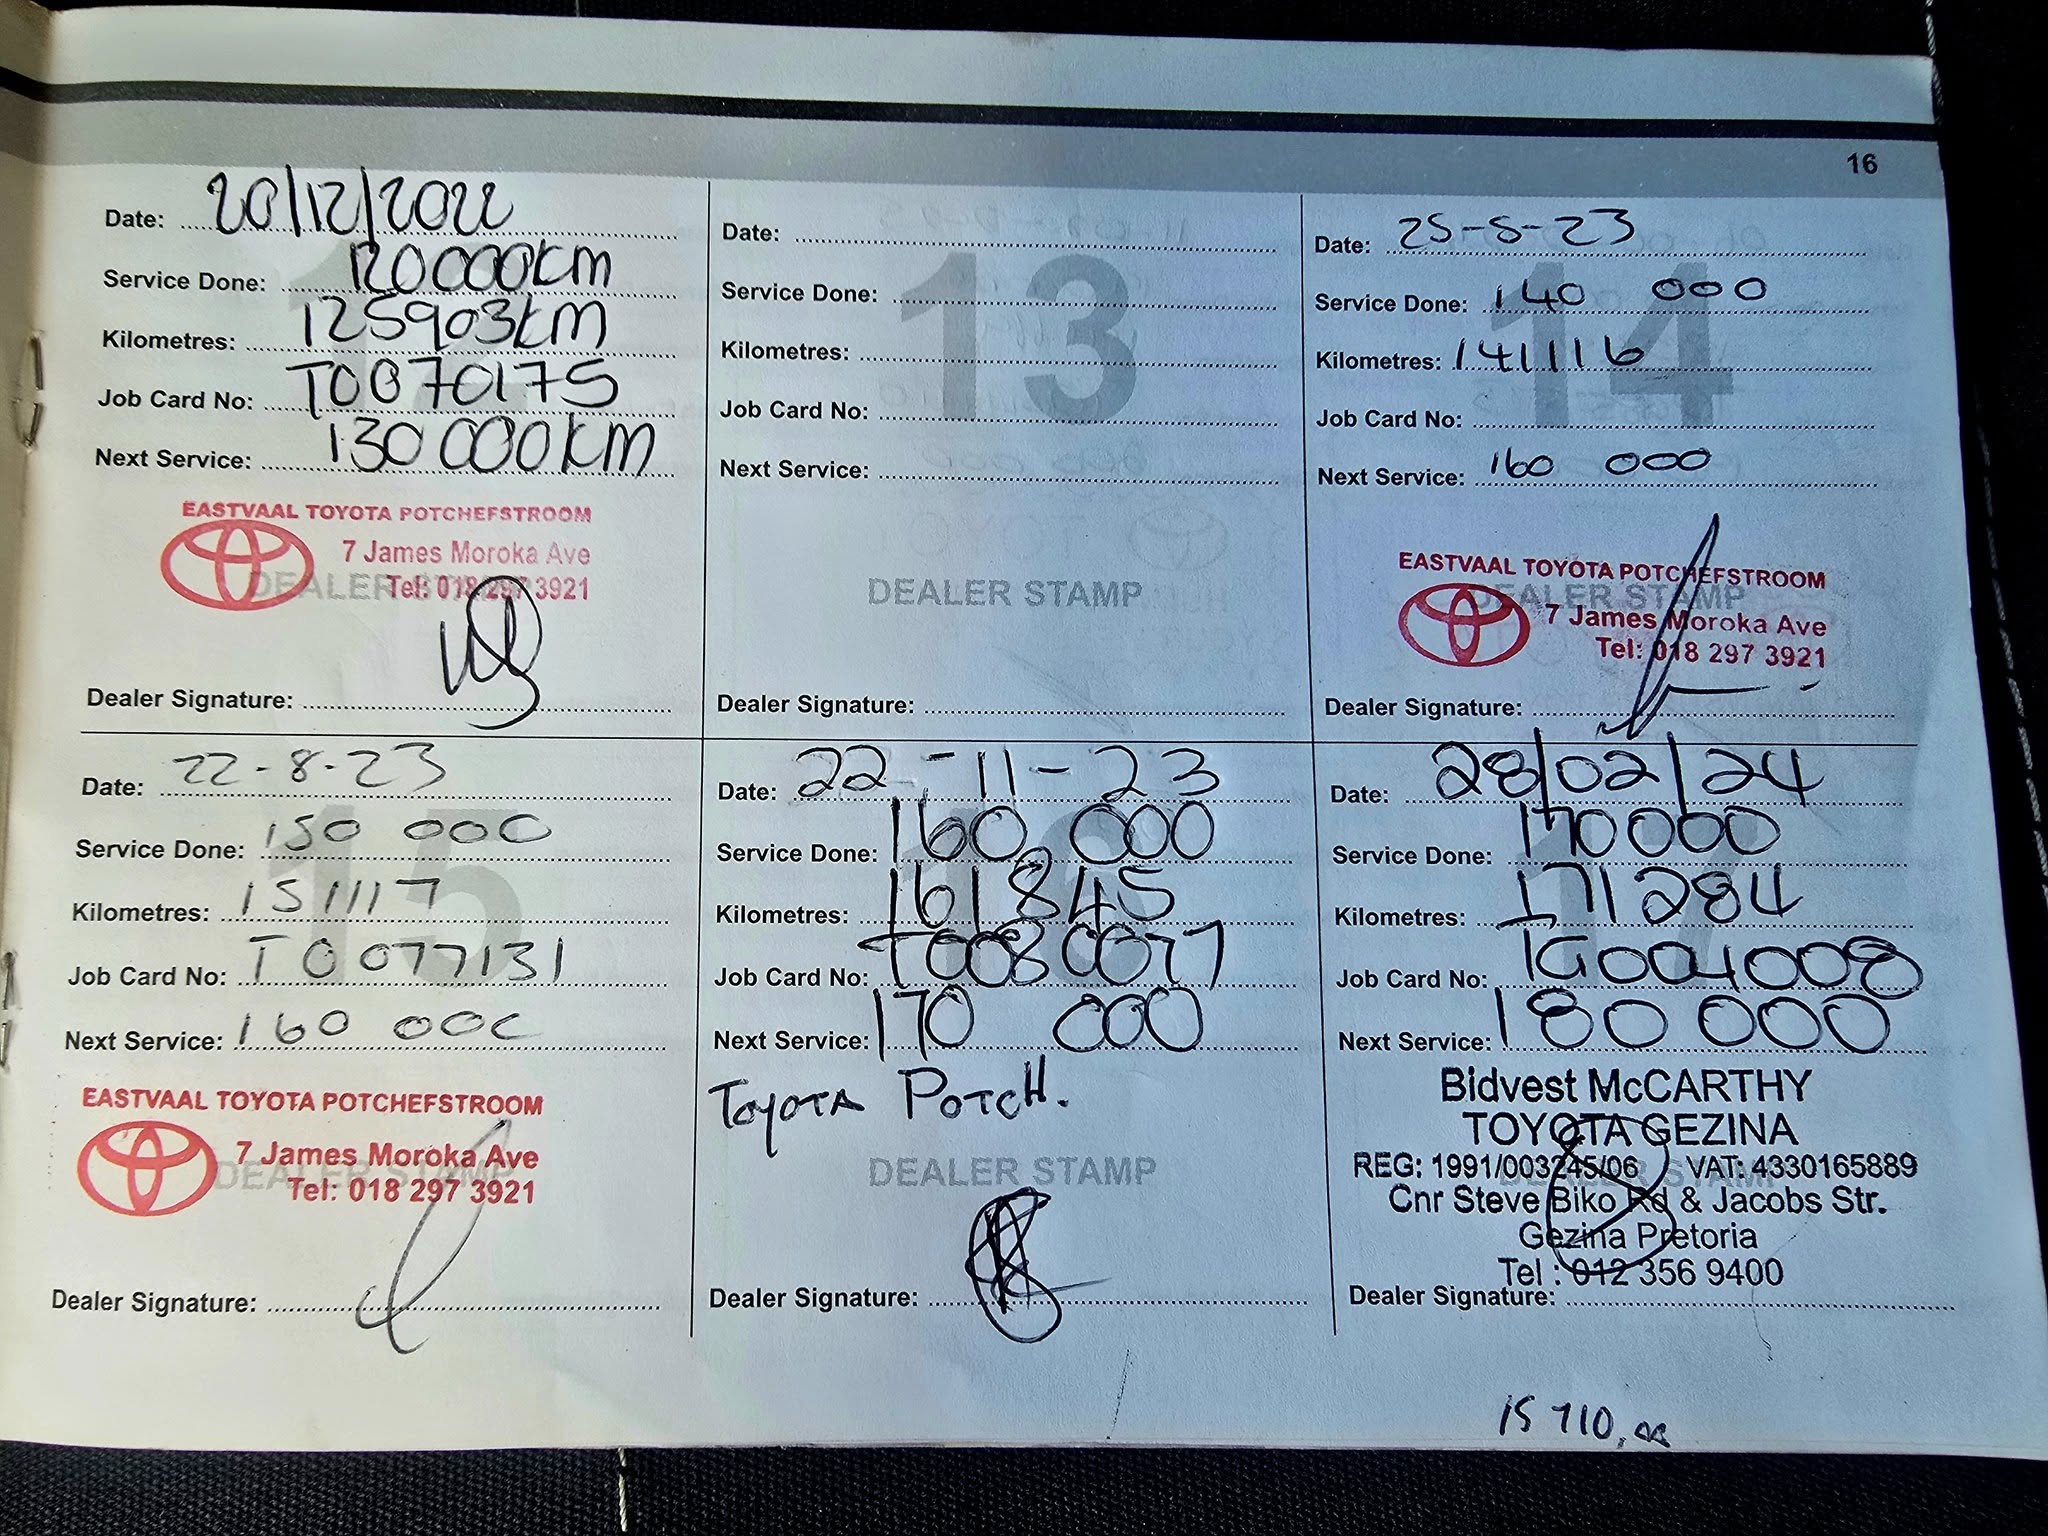 16
Date: 20/12/2022
Service Done: 120000km
Kilometres: 125903km
Job Card No: T0070175
Next Service: 130000km
EASTVAAL TOYOTA POTCHEFSTROOM
7 James Moroka Ave
DEALER STAMP
Tel: 018 297 3921
Dealer Signature:
13
Date:
Service Done:
Kilometres:
Job Card No:
Next Service:
DEALER STAMP
Dealer Signature:
14
Date: 25-5-23
Service Done: 140 000
Kilometres: 141116
Job Card No:
Next Service: 160 000
EASTVAAL TOYOTA POTCHEFSTROOM
DEALER STAMP
7 James Moroka Ave
Tel: 018 297 3921
Dealer Signature:
15
Date: 22-8-23
Service Done: 150 000
Kilometres: 151117
Job Card No: T0077131
Next Service: 160 000
EASTVAAL TOYOTA POTCHEFSTROOM
7 James Moroka Ave
DEALER STAMP
Tel: 018 297 3921
Dealer Signature:
16
Date: 22-11-23
Service Done: 160 000
Kilometres: 161845
Job Card No: T0080077
Next Service: 170 000
TOYOTA POTCH.
DEALER STAMP
Dealer Signature:
17
Date: 28/02/24
Service Done: 170000
Kilometres: 171284
Job Card No: 1G004008
Next Service: 180 000
Bidvest McCARTHY
TOYOTA GEZINA
REG: 1991/003245/06 VAT: 4330165889
DEALER STAMP
Cnr Steve Biko Rd & Jacobs Str.
Gezina Pretoria
Tel : 012 356 9400
Dealer Signature:
15 710,00